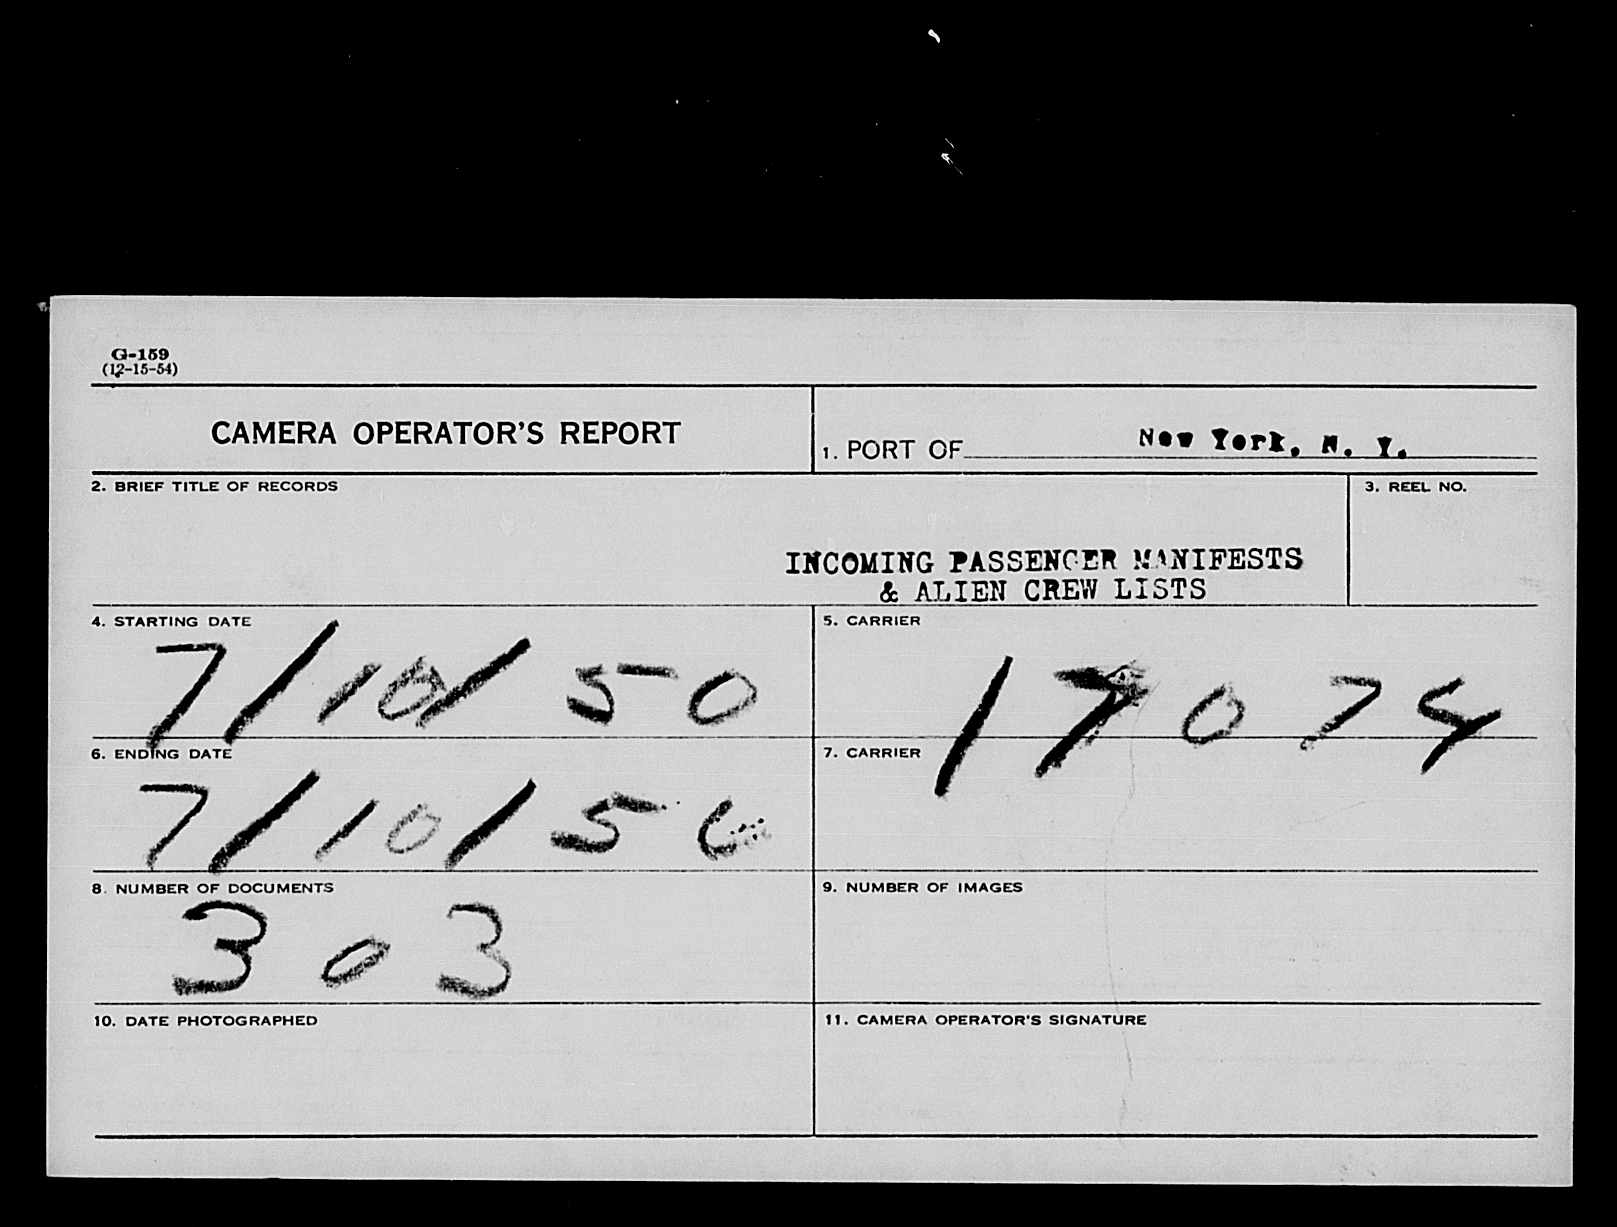 G-159
(12-15-54)
CAMERA OPERATOR'S REPORT
1. PORT OF New York, N. Y.
2. BRIEF TITLE OF RECORDS
3. REEL NO.
INCOMING PASSENGER MANIFESTS
& ALIEN CREW LISTS
4. STARTING DATE
7/10/50
5. CARRIER
17074
6. ENDING DATE
7/10/50
7. CARRIER
8. NUMBER OF DOCUMENTS
303
9. NUMBER OF IMAGES
10. DATE PHOTOGRAPHED
11. CAMERA OPERATOR'S SIGNATURE